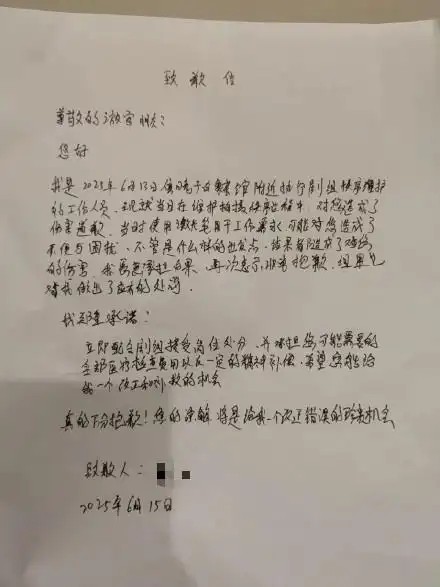 致歉信
尊敬的游客朋友:
您好
我是2025年6月13日傍晚于白象馆附近拍行剧组秩序维护
的工作人员,现就当日在维护拍摄秩序过程中,对您造成了
伤害道歉,当时使用激光笔用于工作需求,可能对您造成了
不便与困扰,不管是什么样的出发点,结果都造成了对您
的伤害,我愿意承担后果,再次表示非常抱歉,组里也
对我做出了应有的处罚
我郑重承诺:
立即配合剧组接受岗位处分,并承担您可能需要的
全部医疗检查费用以及一定的精神补偿,希望您能给
我一个改正和补救的机会
真的十分抱歉!您的谅解将是给我一个改正错误的珍贵机会
致歉人:
2025年6月15日